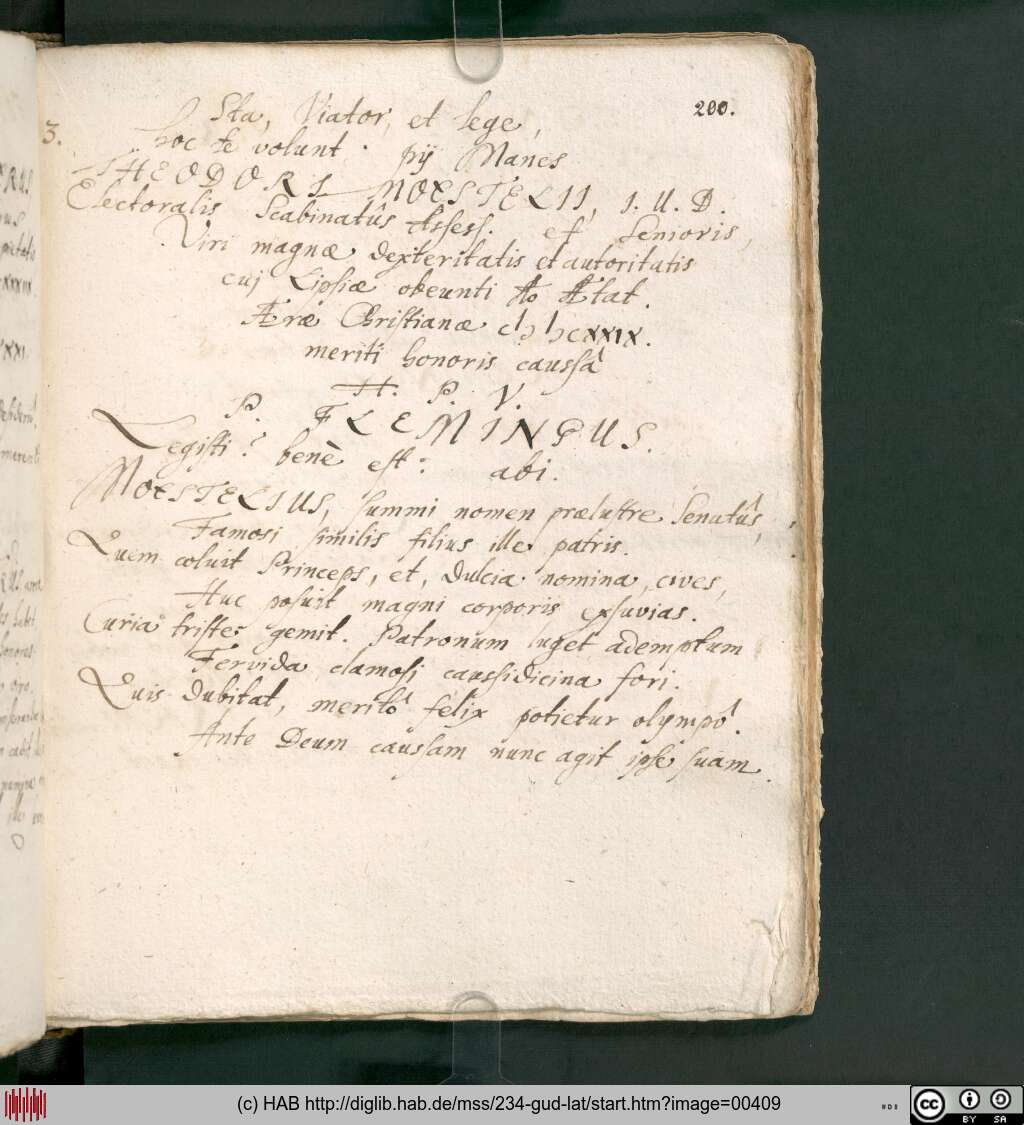 200.
3.
Sta, Viator, et lege,
hoc te volunt pij Manes
THEODORI MOESTELII, I. U. D.
Electoralis Scabinatûs Assess. et Senioris,
Viri magnæ dexteritatis et autoritatis
cuj Lipsiæ obeunti Ao Ætat.
Æræ Christianæ cIɔ Iɔcxxix.
meriti honoris caussâ
H. P. V.
P. FLEMINGUS.
Legisti? benè est: abi.
MOESTELIUS, summi nomen prælustre Senatûs,
Famosi similis filius ille patris.
Quem coluit Princeps, et, dulcia nomina, cives,
Huc posuit magni corporis exsuvias.
Curia triste gemit. Patronum luget ademptum
Fervida clamosi caussidicina fori.
Quis dubitat, meritô felix potietur olympô.
Ante Deum caussam nunc agit ipse suam.
(c) HAB http://diglib.hab.de/mss/234-gud-lat/start.htm?image=00409
cc BY SA